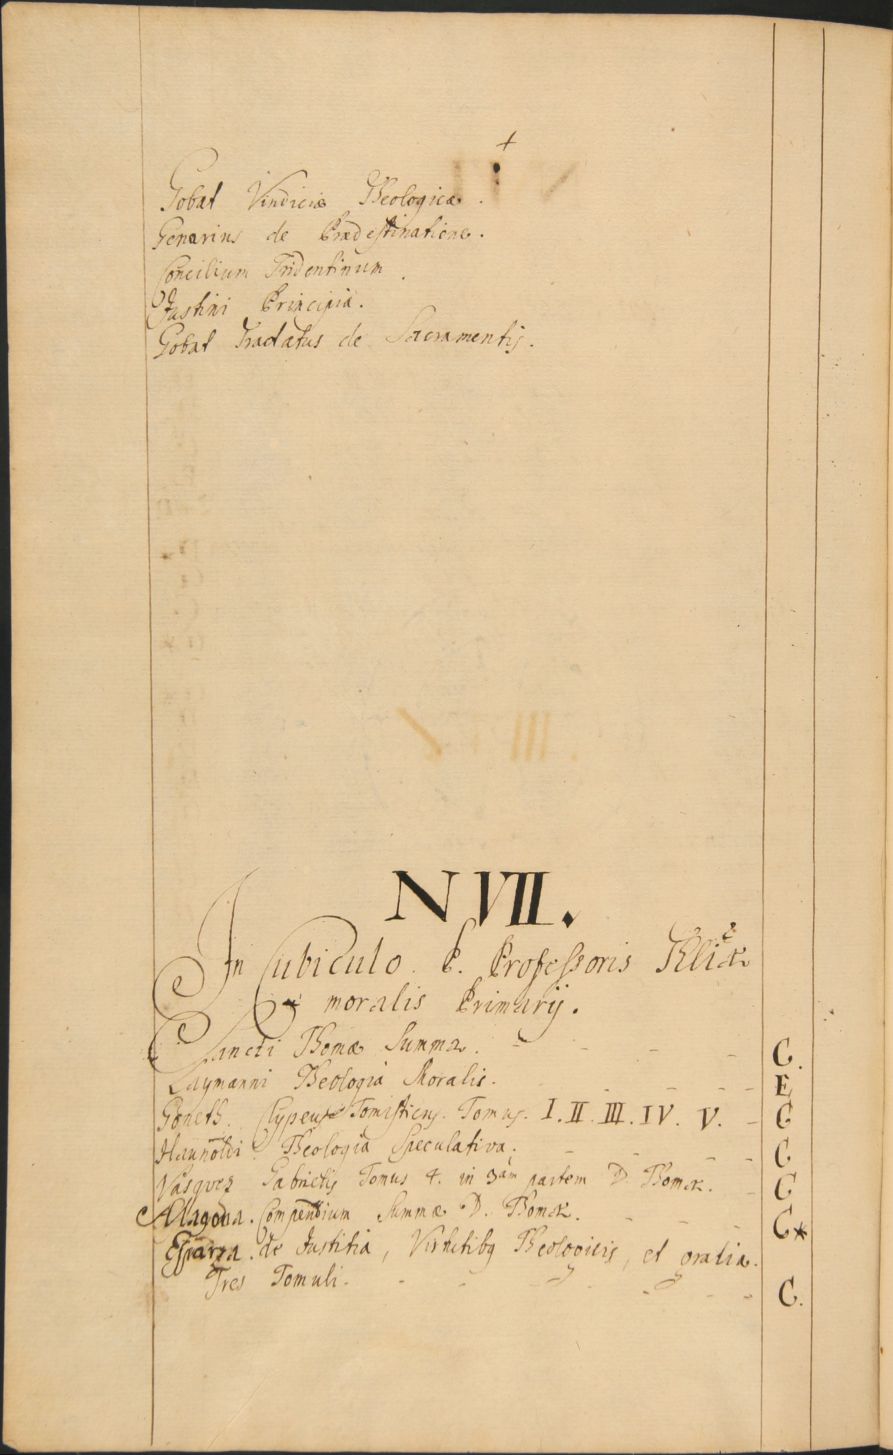 +
Gobat Vindiciæ Theologicæ.
Genarius de Prædestinatione.
Concilium Tridentinum.
Justini Principia.
Gobat Tractatus de Sacramentis.
N VII.
In Cubiculo P. Professoris
moralis Primarij.
Sancti Thomæ Summa. C.
Laymanni Theologia Moralis. E
Goneth. Clypeus Tomisticus. Tomus. I. II. III. IV. V. C
Haunoldi Theologia Speculativa. C
Vasquez Gabrielis Tomus 4. in 3am partem D. Thomæ. C
Alagona. Compendium Summæ D. Thomæ. C*
Esparza. de Justitia, Virtutibq Theologicis, et gratia.
Tres Tomuli. C.